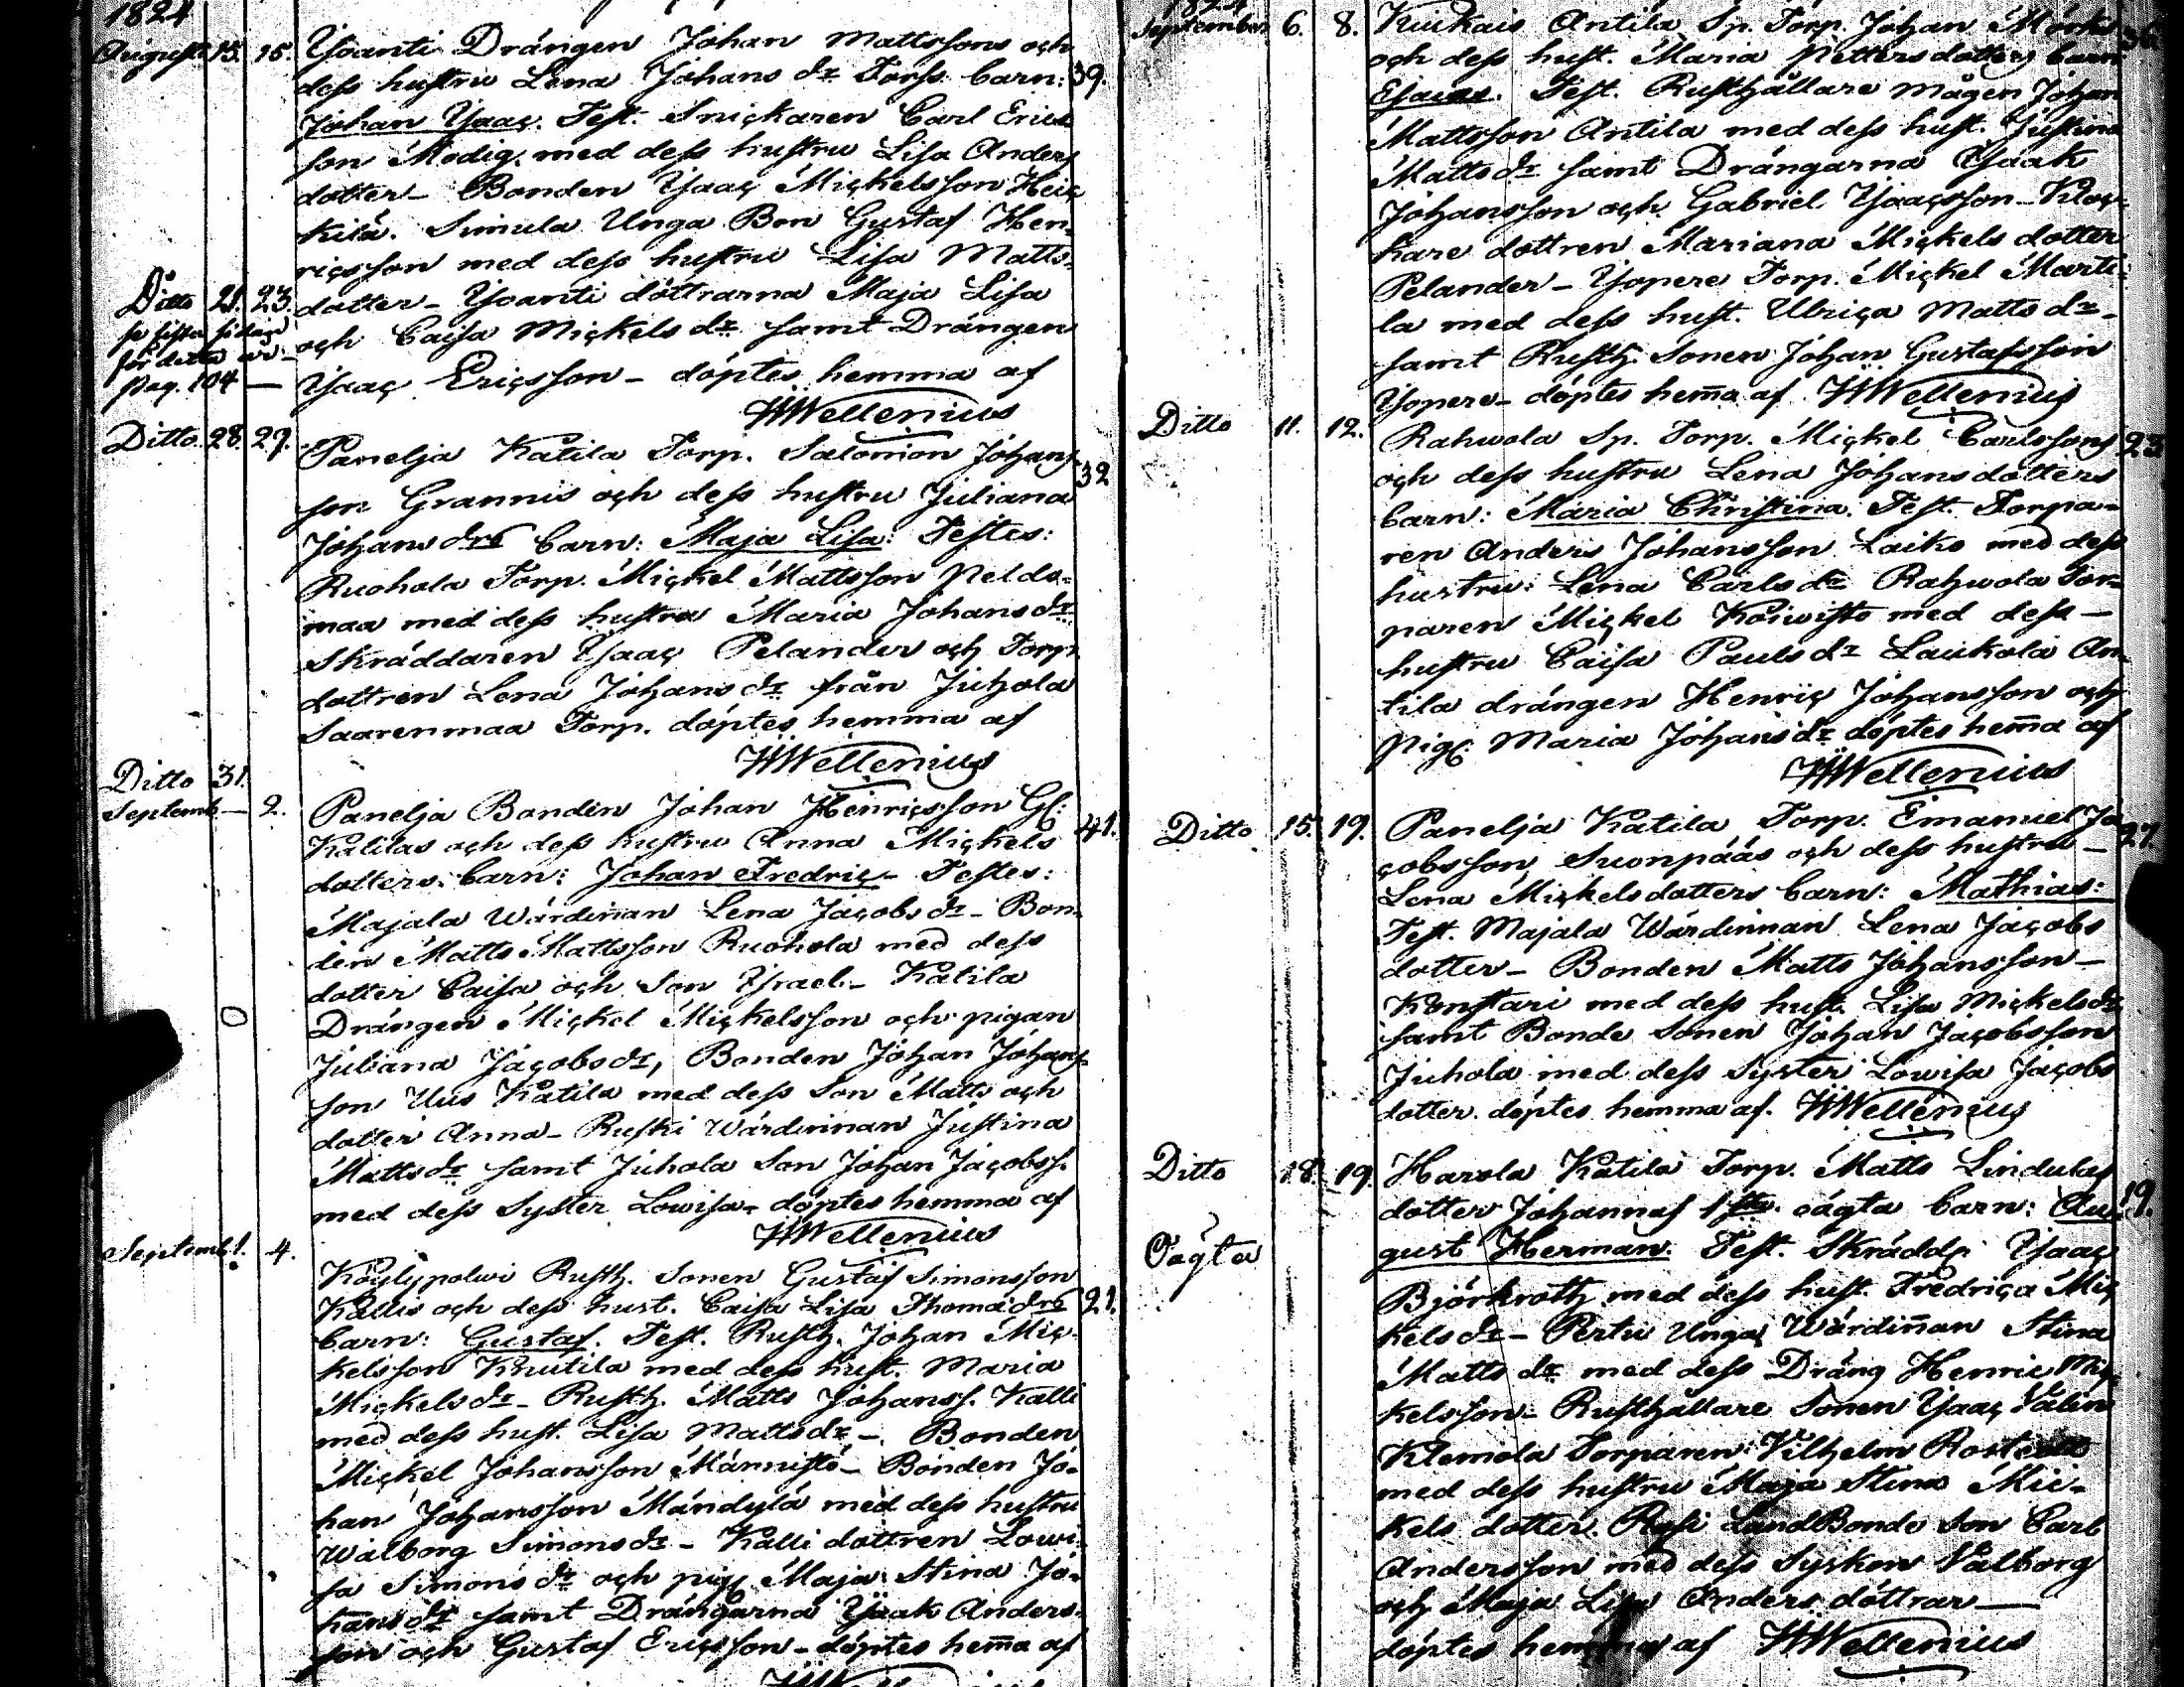 1824
August 15. 15. Ysanti Drängen Johan Mattssons och
dess hustru Lena Johans dr Torss. barn: 39.
Johan Ysaac. Test. Snickaren Carl Erics
son Modig med dess hustru Lisa Anders
dotter - Bonden Ysaac Mickelsson Heic
kilä. Simula Unga Bon Gustaf Hen
ricsson med dess hustru Lisa Matts
Ditto 21. 23. dotter - Ysanti döttrarna Maja Lisa
se sista sidan
och Caisa Mickels dr samt Drängen
för detta
pag. 104 — Ysaac Ericsson - döptes hemma af
HWellenius
Ditto 28. 29. Panelja Katila Torp. Salomon Johans
son Grannis och dess hustru Juliana 32
Johans drs barn: Maja Lisa: Testes:
Ruohola Torp. Mickel Mattsson Peldo-
maa med dess hustru Maria Johans dr
Skräddaren Ysaac Pelander och Torp
dottren Lena Johans dr från Juhola
Saarenmaa Torp. döptes hemma af
HWellenius
Ditto 31.
Septemb. — 2. Panelja Bonden Johan Henricsson Gl:
Katilas och dess hustru Anna Mickels 41.
dotters barn: Johan Fredric - Testes:
Majala Wärdinnan Lena Jacobs dr - Bon
den Matts Mattsson Ruohola med dess
dotter Caisa och Son Ysrael - Katila
Drängen Mickel Mickelsson och pigan
Juliana Jacobs dr, Bonden Johan Johans
son Uus Katila med dess Son Matts och
dotter Anna - Ruski Wärdinnan Justina
Matts dr samt Juhola Son Johan Jacobss.
med dess Syster Lowisa - döptes hemma af
HWellenius
Septemb. 1. 4. Köylypolwi Rusth. Sonen Gustaf Simonsson
Kallis och dess hust. Caisa Lisa Thoma drs 21.
barn: Gustaf. Test. Rusth. Johan Mic-
kelsson Knutila med dess hust. Maria
Mickels dr - Rusth. Matts Johanss. Kalli
med dess hust. Lisa Matts dr - Bonden
Mickel Johansson Männistö - Bonden Jo-
han Johansson Mändylä med dess hustru
Walborg Simons dr - Kalli dottren Lowi
sa Simons dr och pig. Maja Stina Jo-
hans dr samt Drängarna Ysaak Anders-
son och Gustaf Ericsson - döptes hem̄a af
HWellenius
1824
September 6. 8. Kiukais Antila Sp. Torp. Johan Mörks 36.
och dess hust. Maria Petters dotters barn
Esaias. Test. Rusthållare mågen Johan
Mattsson Antila med dess hust. Justina
Matts dr samt Drängarna Ysaak
Johansson och Gabriel Ysaacsson - Kloc-
kare dottren Mariana Mickels dotter
Pelander - Yopere Torp. Mickel Marti-
la med dess hust. Ulrica Matts dr -
samt Rusth. Sonen Johan Gustafsson
Yopere - döptes hem̄a af HWellenius
Ditto 11. 12. Rahwola Sp. Torp. Mickel Carlssons 23
och dess hustru Lena Johans dotters
barn: Maria Christina. Test. Torpa-
ren Anders Johansson Laiko med dess
hustru: Lena Carls dr Rahwola Tor-
paren Mickel Koiwisto med dess —
hustru Caisa Pauls dr Laukola An
tila drängen Henric Johansson och
Pig. Maria Johans dr döptes hem̄a af
HWellenius
Ditto 15. 19. Panelja Katila Torp. Emanuel Ja 27.
cobsson Suonpääs och dess hustru —
Lena Mickels dotters barn: Mathias:
Test. Majala Wärdinnan Lena Jacobs
dotter - Bonden Matts Johansson -
Konstari med dess hust. Lisa Mickels dr
samt Bonde Sonen Johan Jacobsson
Juhola med dess Syster Lowisa Jacobs
dotter. döptes hemma af. HWellenius
Ditto 18. 19. Harola Katila Torp. Matts Lindulas
dotter Johannas 1sta oägta barn: Au- 19.
Oägta gust Herman. Test. Skrädd. Ysaac
Björkroth med dess hust. Fredrica Mic
kels dr - Pertu Unga Wärdin̄an Stina
Matts dr med dess Dräng Henric Mic-
kelsson - Rusthållare Sonen Ysaac Valin
Klemola Torparen: Vilhelm
med dess hustru Maja Stina Mic-
kels dotter. Rosi LandBonde Son Carl
Andersson med dess Syskon Valborg
och Maja Lisa Anders döttrar —
döptes hemma af HWellenius